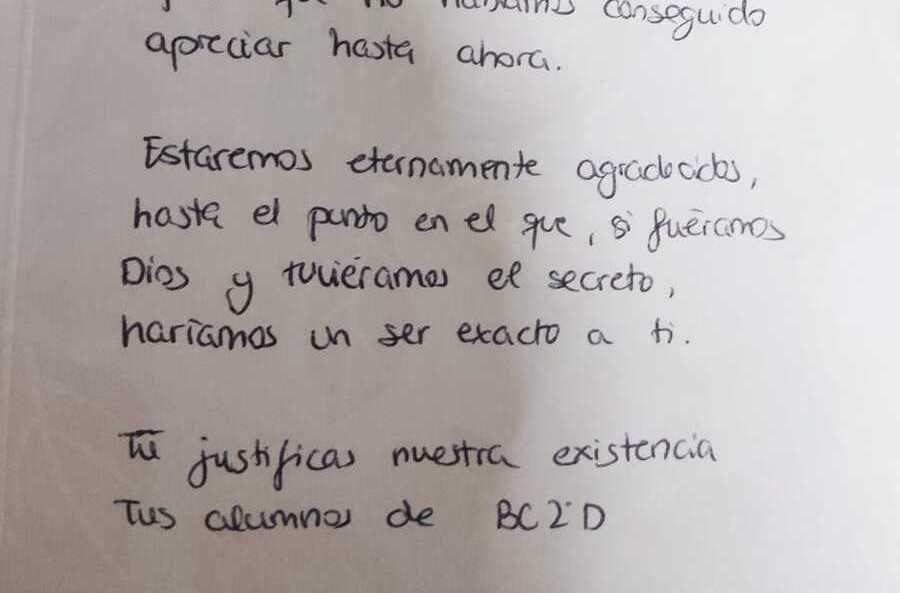 que no habíamos conseguido
apreciar hasta ahora.
Estaremos eternamente agradecidos,
hasta el punto en el que, si fuéramos
Dios y tuviéramos el secreto,
haríamos un ser exacto a ti.
Tú justificas nuestra existencia
Tus alumnos de BC2ºD